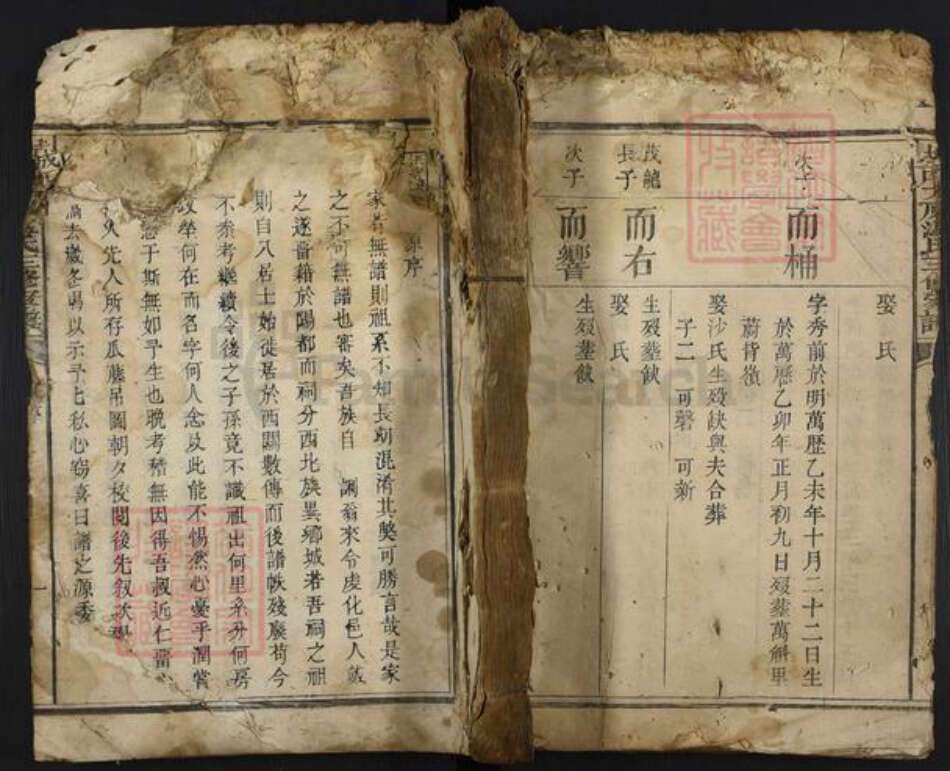 娶 氏
次子 而桶
字秀前於明萬歷乙未年十月二十二日生
於萬歷乙卯年正月初九日歿葬萬斛里
蔚背嶺
娶沙氏生歿缺與夫合葬
子二 可磬 可新
茂龍長子 而右
生歿葬缺
娶 氏
次子 而響
生歿葬缺
序
家若無譜則祖系不知長幼混淆其獘可勝言哉是家
之不可無譜也審矣吾族自 調翁來令虔化邑人
之遂晋籍於陽都而祠分西北族異鄉城若吾祠之祖
則自八居士始徙居於西關數傳而後譜帙殘廢苟今
不条考繼續令後之子孫竟不識祖出何里系分何房
塋何在而名字何人念及此能不惕然心憂乎潤嘗
念于斯無如予生也晚考稽無因得吾叔近仁晋
人先人所存瓜藤吊圖朝夕校閱後先叙次
去歲冬男以示予七私心竊喜曰譜之源委